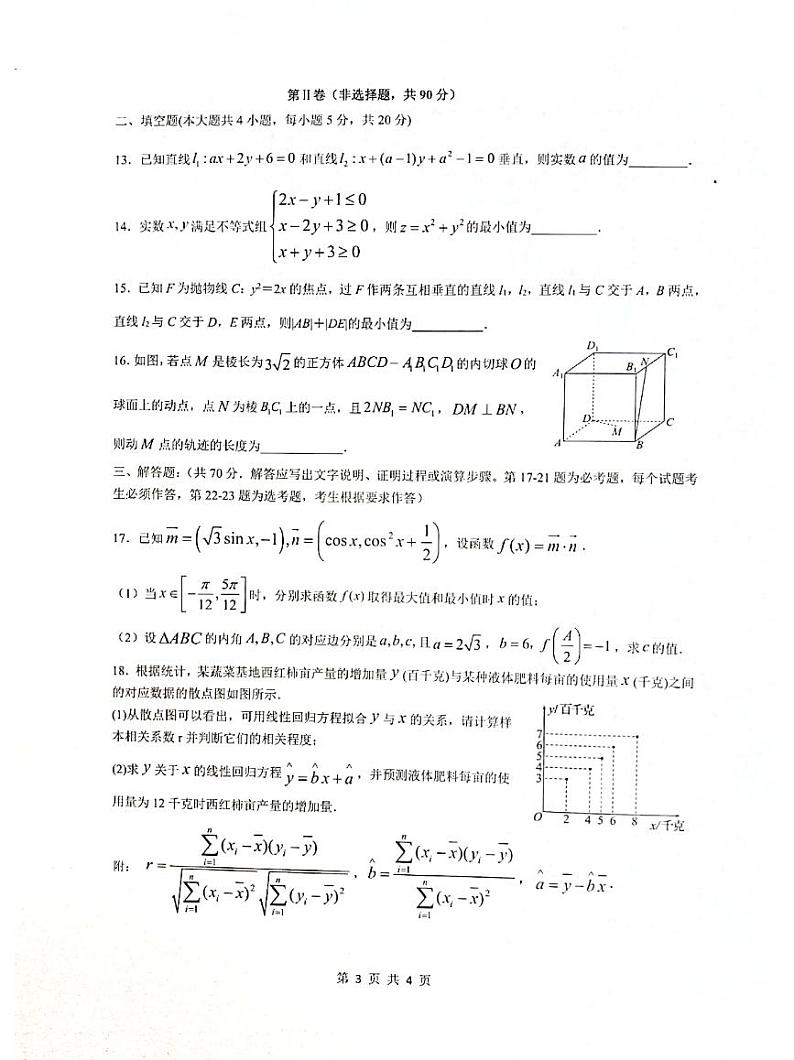 第Ⅱ卷（非选择题，共90分）
二、填空题(本大题共4小题，每小题5分，共20分)
13．已知直线l₁:ax+2y+6=0和直线l₂:x+(a−1)y+a²−1=0垂直，则实数a的值为________．
14．实数x,y满足不等式组{2x−y+1≤0
x−2y+3≥0，则z=x²+y²的最小值为________．
x+y+3≥0
15．已知F为抛物线C：y²＝2x的焦点，过F作两条互相垂直的直线l₁，l₂，直线l₁与C交于A，B两点，
直线l₂与C交于D，E两点，则|AB|＋|DE|的最小值为________．
16．如图，若点M是棱长为3√2的正方体ABCD−A₁B₁C₁D₁的内切球O的
球面上的动点，点N为棱B₁C₁上的一点，且2NB₁=NC₁，DM⊥BN，
则动M点的轨迹的长度为________．
D₁
C₁
A₁
B₁
N
D
M
C
A
B
三、解答题：（共70分．解答应写出文字说明、证明过程或演算步骤。第17-21题为必考题，每个试题考
生必须作答，第22-23题为选考题，考生根据要求作答）
17．已知m⃗=(√3sinx,−1),n⃗=(cosx,cos²x+1/2)，设函数f(x)=m⃗·n⃗．
（1）当x∈[−π/12,5π/12]时，分别求函数f(x)取得最大值和最小值时x的值；
（2）设ΔABC的内角A,B,C的对应边分别是a,b,c,且a=2√3，b=6，f(A/2)=−1，求c的值．
18．根据统计，某蔬菜基地西红柿亩产量的增加量y(百千克)与某种液体肥料每亩的使用量x(千克)之间
的对应数据的散点图如图所示．
(1)从散点图可以看出，可用线性回归方程拟合y与x的关系，请计算样
本相关系数r并判断它们的相关程度；
(2)求y关于x的线性回归方程ŷ=b̂x+â，并预测液体肥料每亩的使
用量为12千克时西红柿亩产量的增加量．
y/百千克
7
6
5
4
3
O 2 4 5 6 8 x/千克
附：r=∑ⁿᵢ₌₁(xᵢ−x̄)(yᵢ−ȳ)/(√∑ⁿᵢ₌₁(xᵢ−x̄)²√∑ⁿᵢ₌₁(yᵢ−ȳ)²)，b̂=∑ⁿᵢ₌₁(xᵢ−x̄)(yᵢ−ȳ)/∑ⁿᵢ₌₁(xᵢ−x̄)²，â=ȳ−b̂x̄．
第 3 页 共 4 页